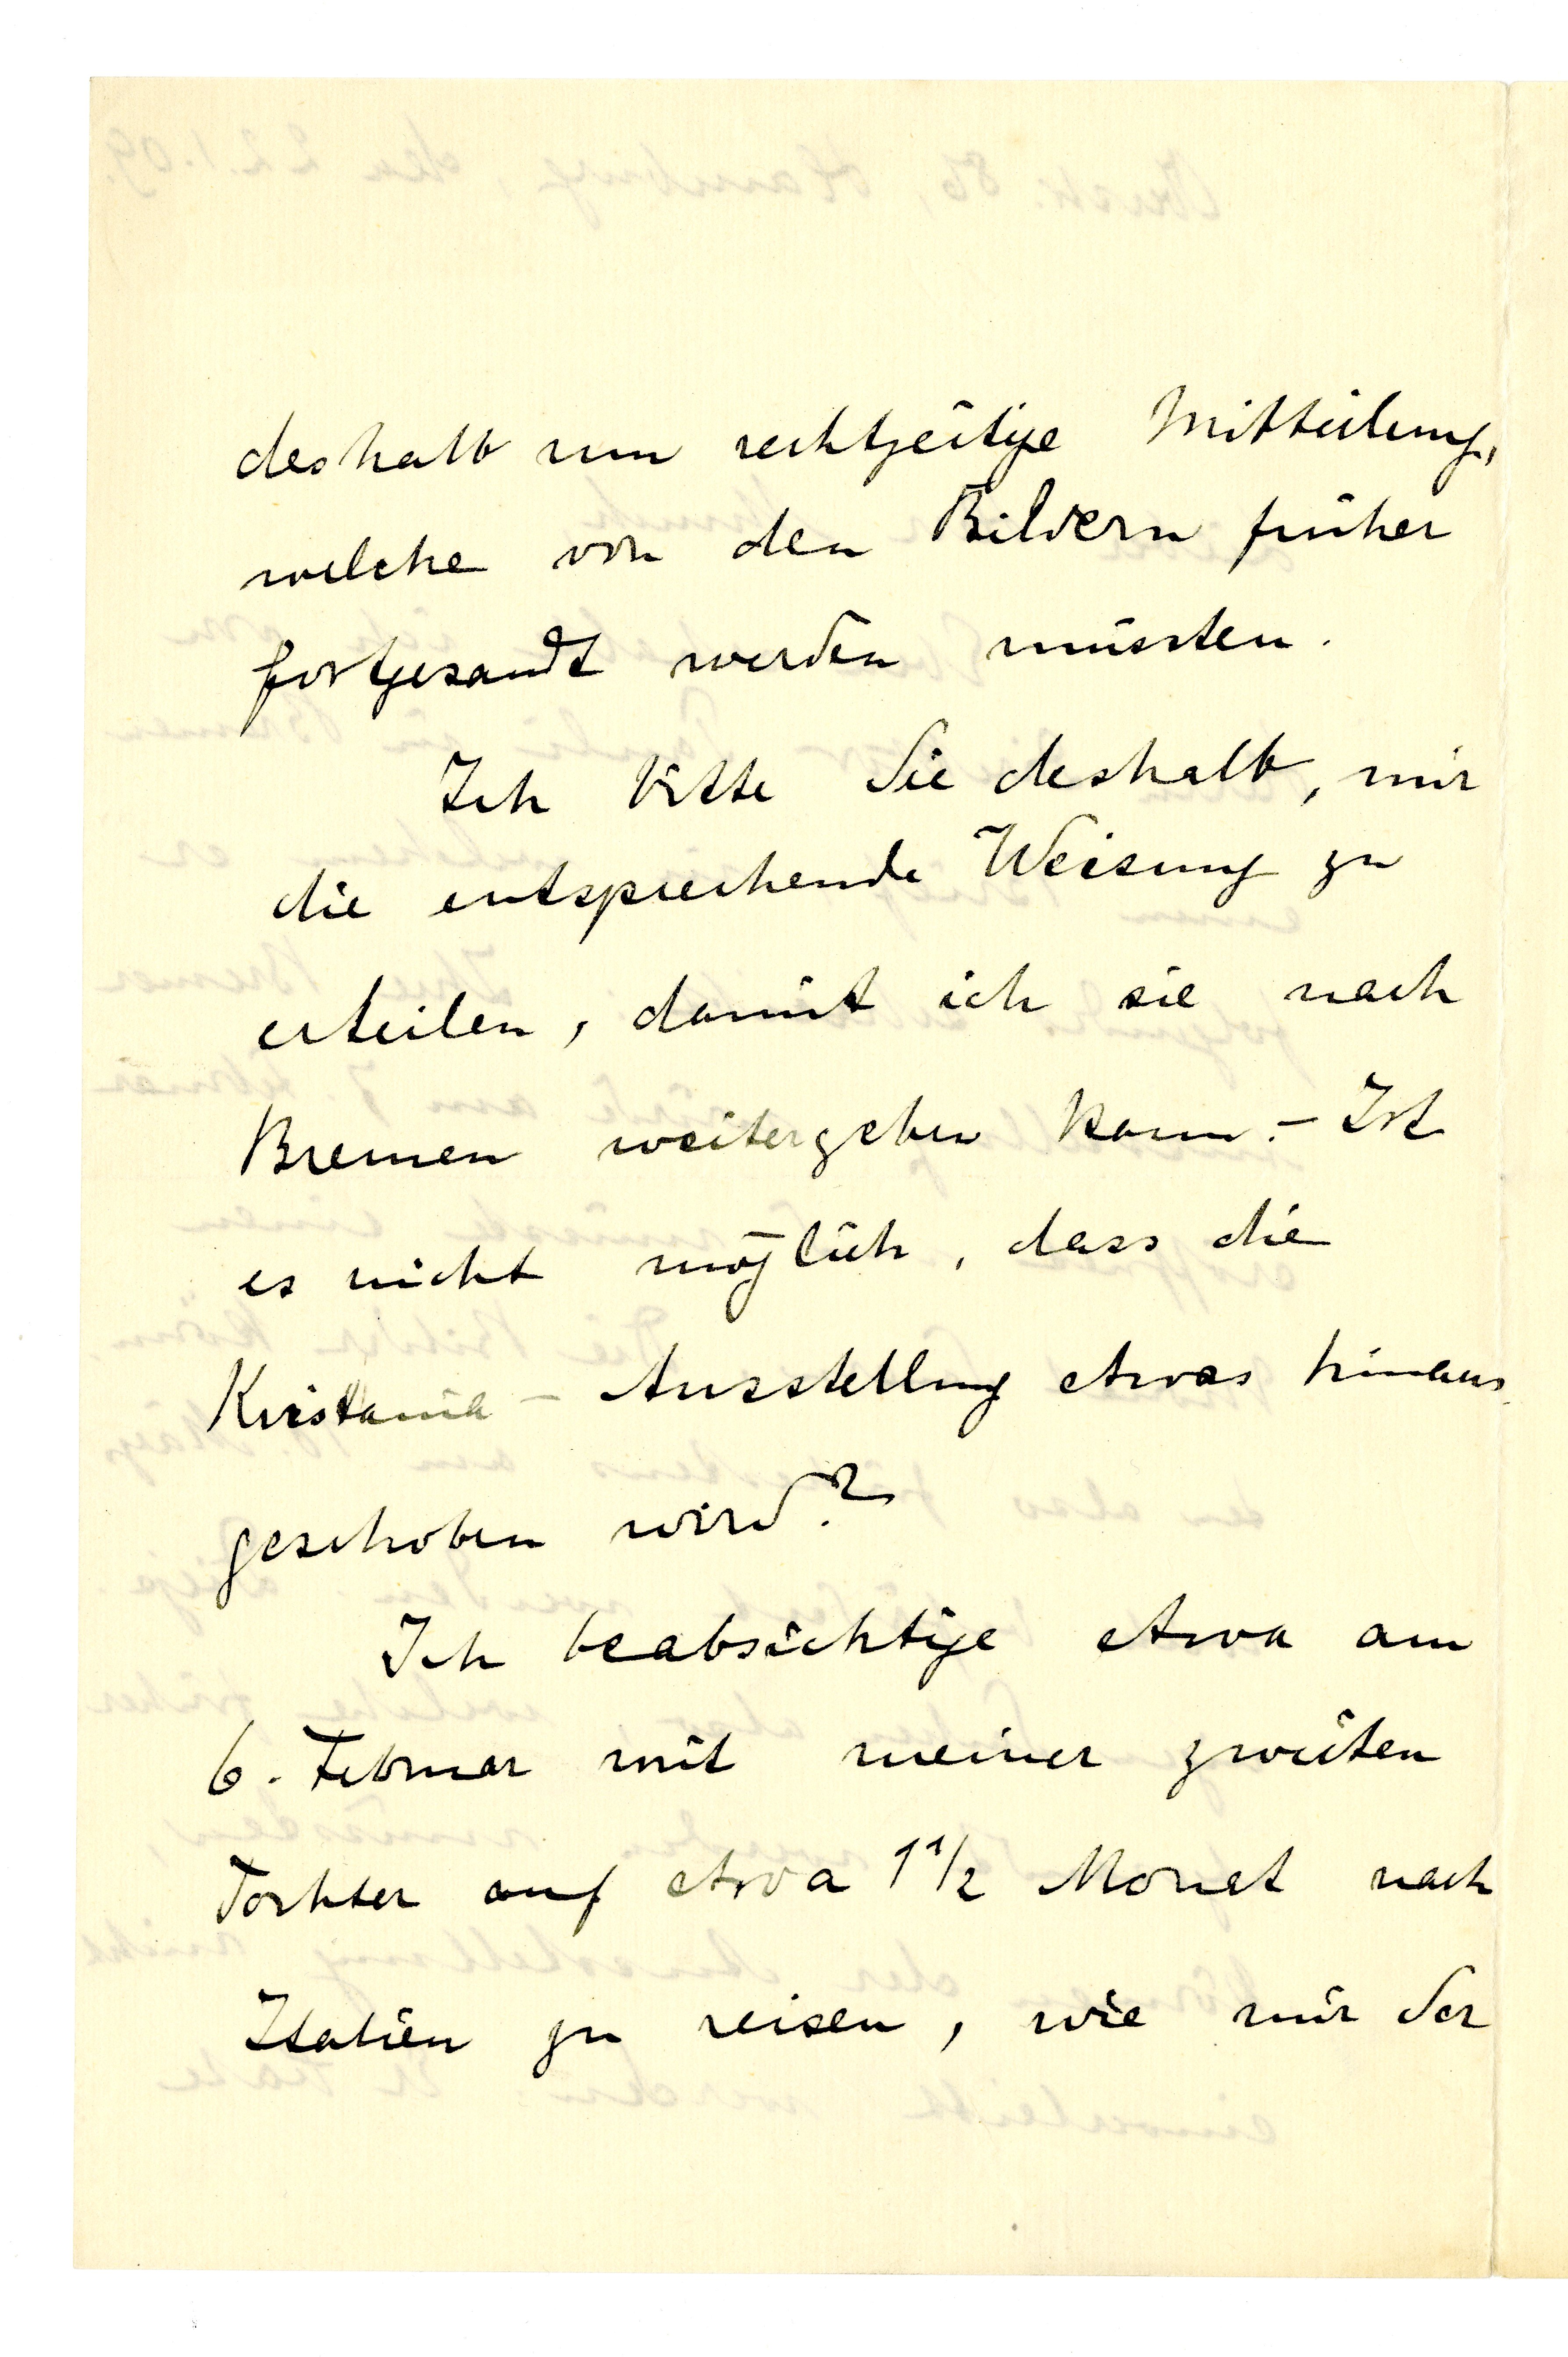 deshalb um rechtzeitige Mitteilung,
welche von den Bildern früher
fortgesandt werden müssten.
Ich bitte Sie deshalb, mir
die entsprechende Weisung zu
erteilen, damit ich sie nach
Bremen weitergeben kann. – Ist
es nicht möglich, dass die
Kristiania – Ausstellung etwas hinaus-
geschoben wird?
Ich beabsichtige etwa am
6. Februar mit meiner zweiten
Tochter auf etwa 1 1/2 Monat nach
Italien zu reisen, wie mir der